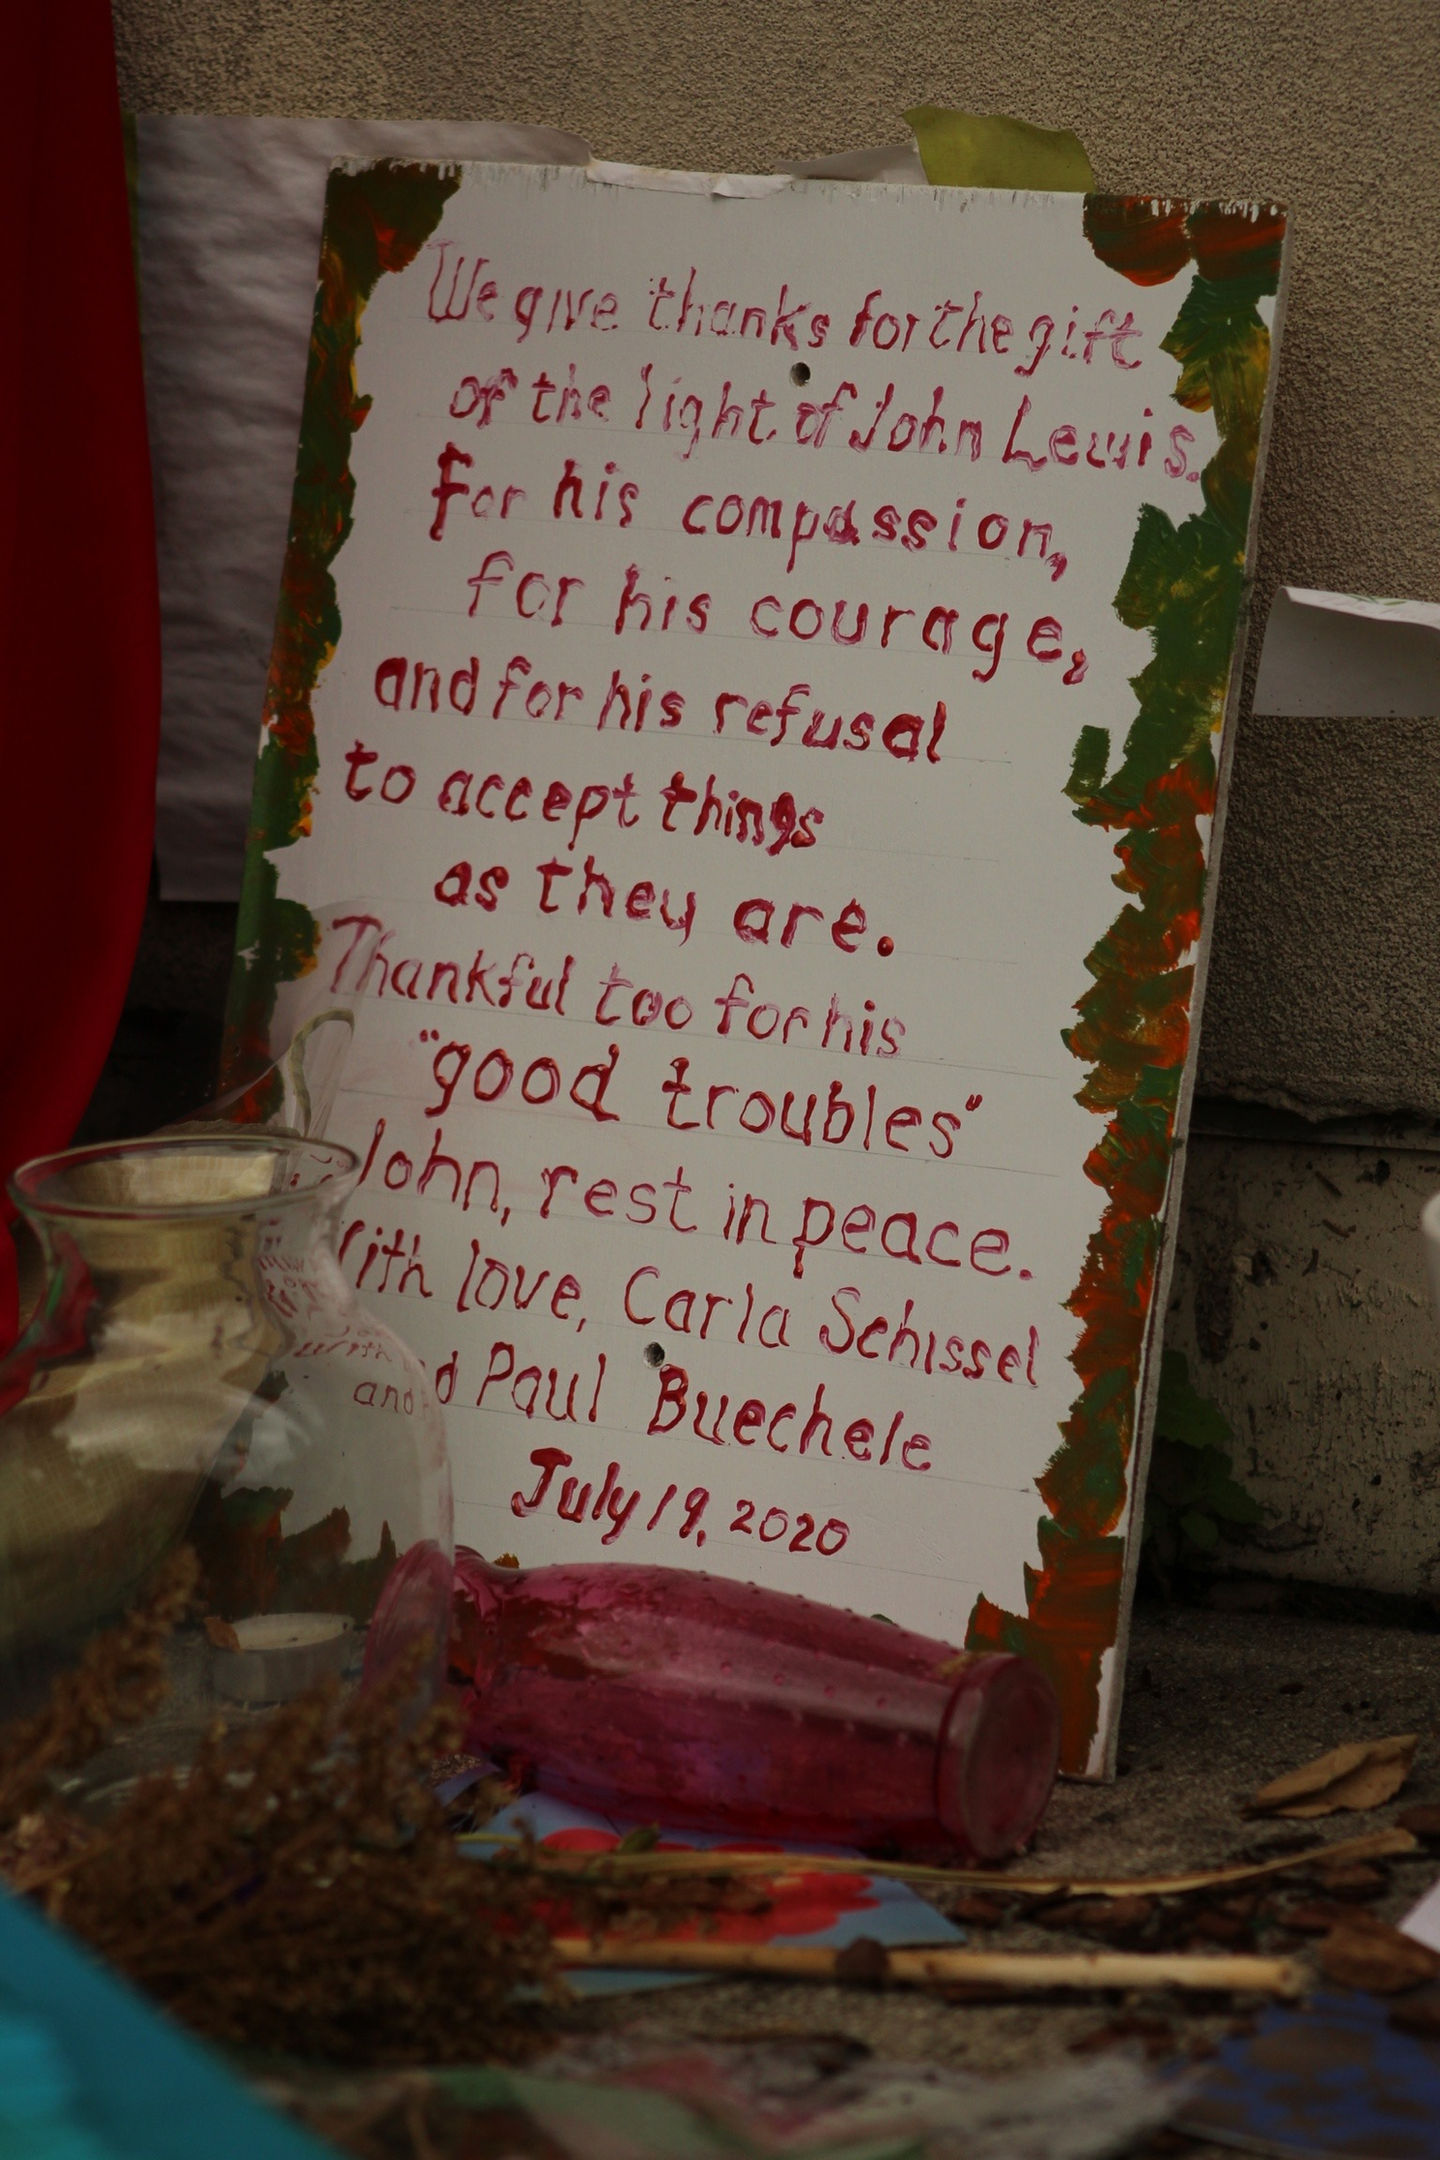 We give thanks for the gift
of the light of John Lewis.
For his compassion,
for his courage,
and for his refusal
to accept things
as they are.
Thankful too for his
"good troubles"
John, rest in peace.
With love, Carla Schissel
and Paul Buechele
July 19, 2020